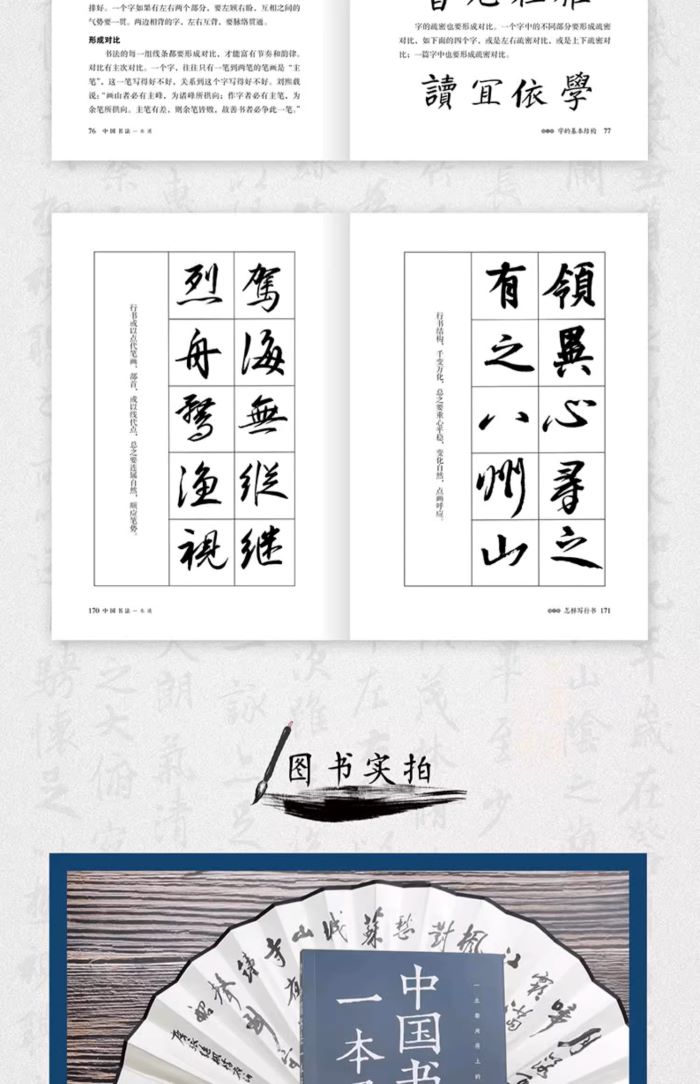 排好。一个字如果有左右两个部分，要左顾右盼，互相之间的
气势要一贯。两边相背的字，左右互背，要脉络贯通。
形成对比
书法的每一组线条都要形成对比，才能富有节奏和韵律。
对比有主次对比。一个字，往往只有一笔到两笔的笔画是“主
笔”，这一笔写得好不好，关系到这个字写得好不好。刘熙载
说：“画山者必有主峰，为诸峰所拱向；作字者必有主笔，为
余笔所拱向。主笔有差，则余笔皆败，故善书者必争此一笔。”
76 中国书法一本通
字的疏密也要形成对比。一个字中的不同部分要形成疏密
对比，如下面的四个字，或是左右疏密对比，或是上下疏密对
比；一篇字中也要形成疏密对比。
讀宜依學
字的基本结构 77
駕海無縱继
烈舟鶩漁視
行书或以点代笔画、部首，或以线代点，总之要连属自然，顺应笔势。
170 中国书法一本通
領異心尋之
有之八州山
行书结构，千变万化，总之要重心平稳，变化自然，点画呼应。
怎样写行书 171
图书实拍
江楓對愁
蘇城山寺
中国书
一本